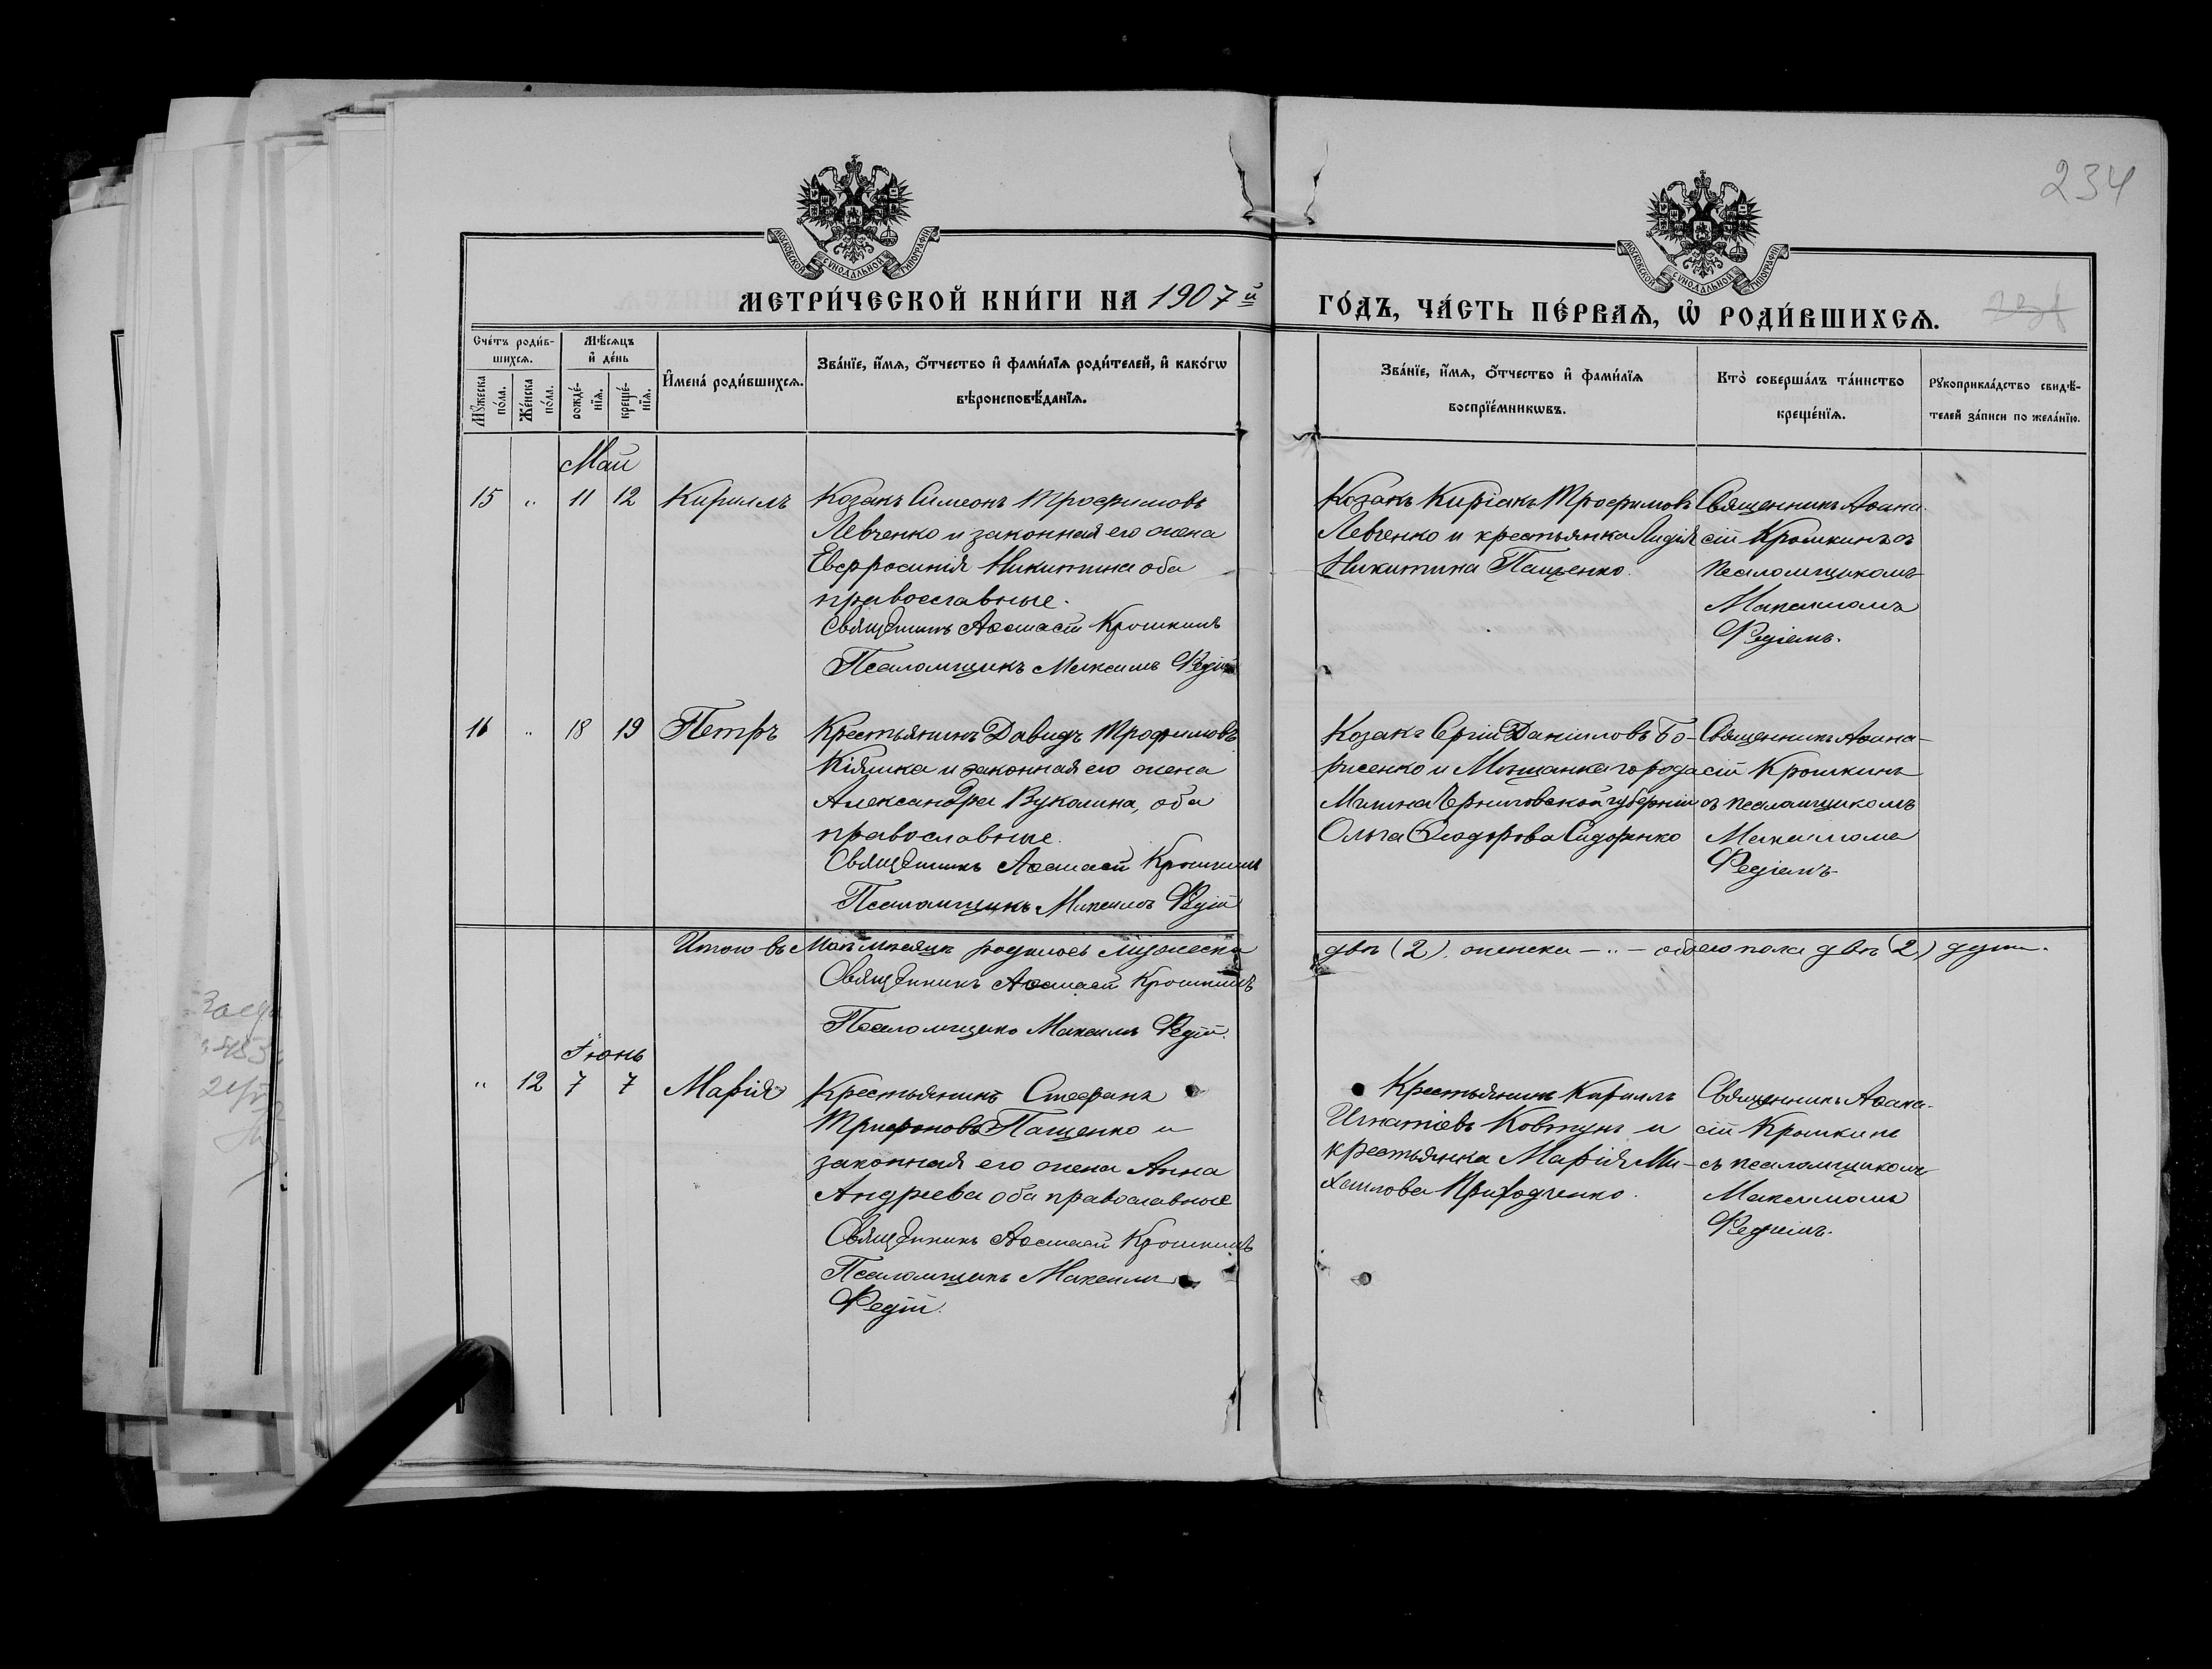 234
МОСКОВСКОЙ СѴНОДАЛЬНОЙ ТИПОГРАФІИ
МОСКОВСКОЙ СѴНОДАЛЬНОЙ ТИПОГРАФІИ
МЕТРИ́ЧЕСКОЙ КНИ́ГИ НА 1907й
ГО́ДЪ, ЧА́СТЬ ПЕ́РВАѦ, Ѽ РОДИ́ВШИХСѦ.
Сче́тъ роди́в-
шихсѧ.
Мꙋжеска по́ла.
Же́нска по́ла.
Мѣ́сѧцъ
и҆ де́нь
рожде́-
нїѧ.
креще́-
нїѧ.
И҆мена̀ роди́вшихсѧ.
Зва́нїе, и҆́мѧ, ѻ҆́тчество и҆ фами́лїѧ роди́телей, и҆ како́гѡ
вѣроисповѣ́данїѧ.
Зва́нїе, и҆́мѧ, ѻ҆́тчество и҆ фами́лїѧ
воспрїе́мникѡвъ.
Кто̀ соверша́лъ та́инство
креще́нїѧ.
Рꙋкоприкла́дство свидѣ́-
телей за́писи по жела́нїю.
Май
15 " 11 12 Кириллъ
Козакъ Симеонъ Трофимовъ
Левченко и законная его жена
Евфросинія Никитина оба
православные.
Священникъ Аѳанасій Крошкинъ
Псаломщикъ Максимъ Федій
Козакъ Киріакъ Трофимовъ
Левченко и крестьянка Лидія
Никитина Пащенко.
Священникъ Аѳана-
сій Крошкинъ съ
псаломщикомъ
Максимомъ
Федіемъ.
16 " 18 19 Петръ
Крестьянинъ Давидъ Трофимовъ
Кіяшка и законная его жена
Александра Вуколина, оба
православные.
Священникъ Аѳанасій Крошкинъ
Псаломщикъ Максимъ Федій
Козакъ Сергій Даніиловъ Бо-
рисенко и Мѣщанка города
Мглина Черниговской губерніи
Ольга Ѳеодорова Сидоренко
Священникъ Аѳана-
сій Крошкинъ
съ псаломщикомъ
Максимомъ
Федіемъ
Итого въ Маѣ мѣсяцѣ родилось мужеска
двѣ (2), женска — " — обоего пола двѣ (2) души.
Священникъ Аѳанасій Крошкинъ
Псаломщикъ Максимъ Федій.
Іюнь
" 12 7 7 Марія
Крестьянинъ Стефанъ
Трифоновъ Пащенко и
законная его жена Анна
Андреева оба православные
Священникъ Аѳанасій Крошкинъ
Псаломщикъ Максимъ
Федій.
Крестьянинъ Кириллъ
Игнатіевъ Ковтунъ и
крестьянка Марія Ми-
хаилова Приходченко.
Священникъ Аѳана-
сій Крошкинъ
съ псаломщикомъ
Максимомъ
Федіемъ.